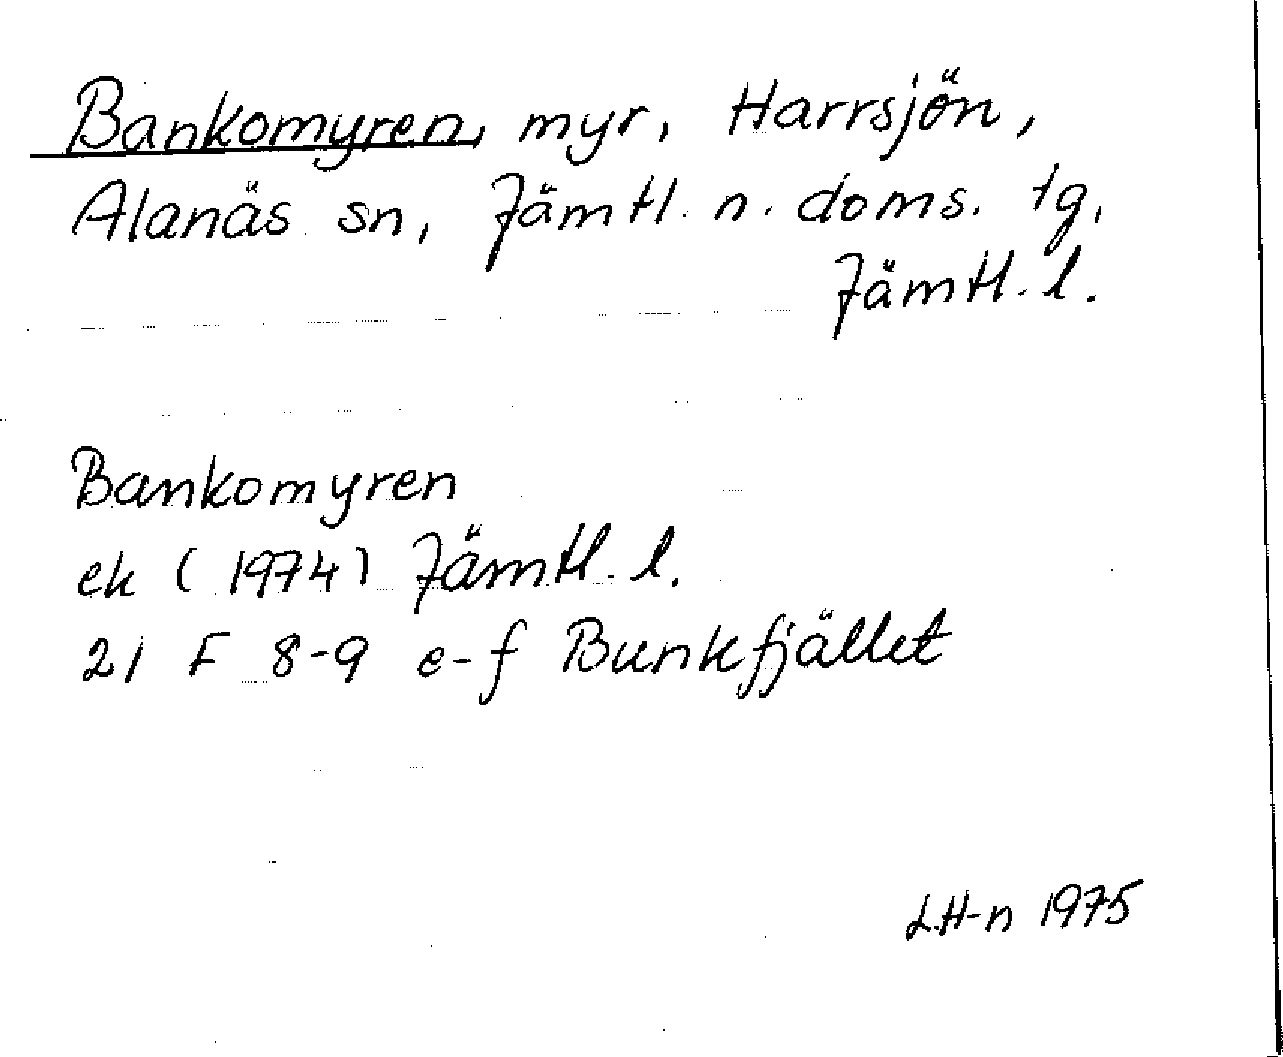 Bankomyren, myr, Harrsjön,
Alanäs sn, Jämtl. n. doms. tg,
Jämtl. l.
Bankomyren
ek (1974) Jämtl. l.
21 F 8-9 e-f Bunkfjället
L.H-n 1975